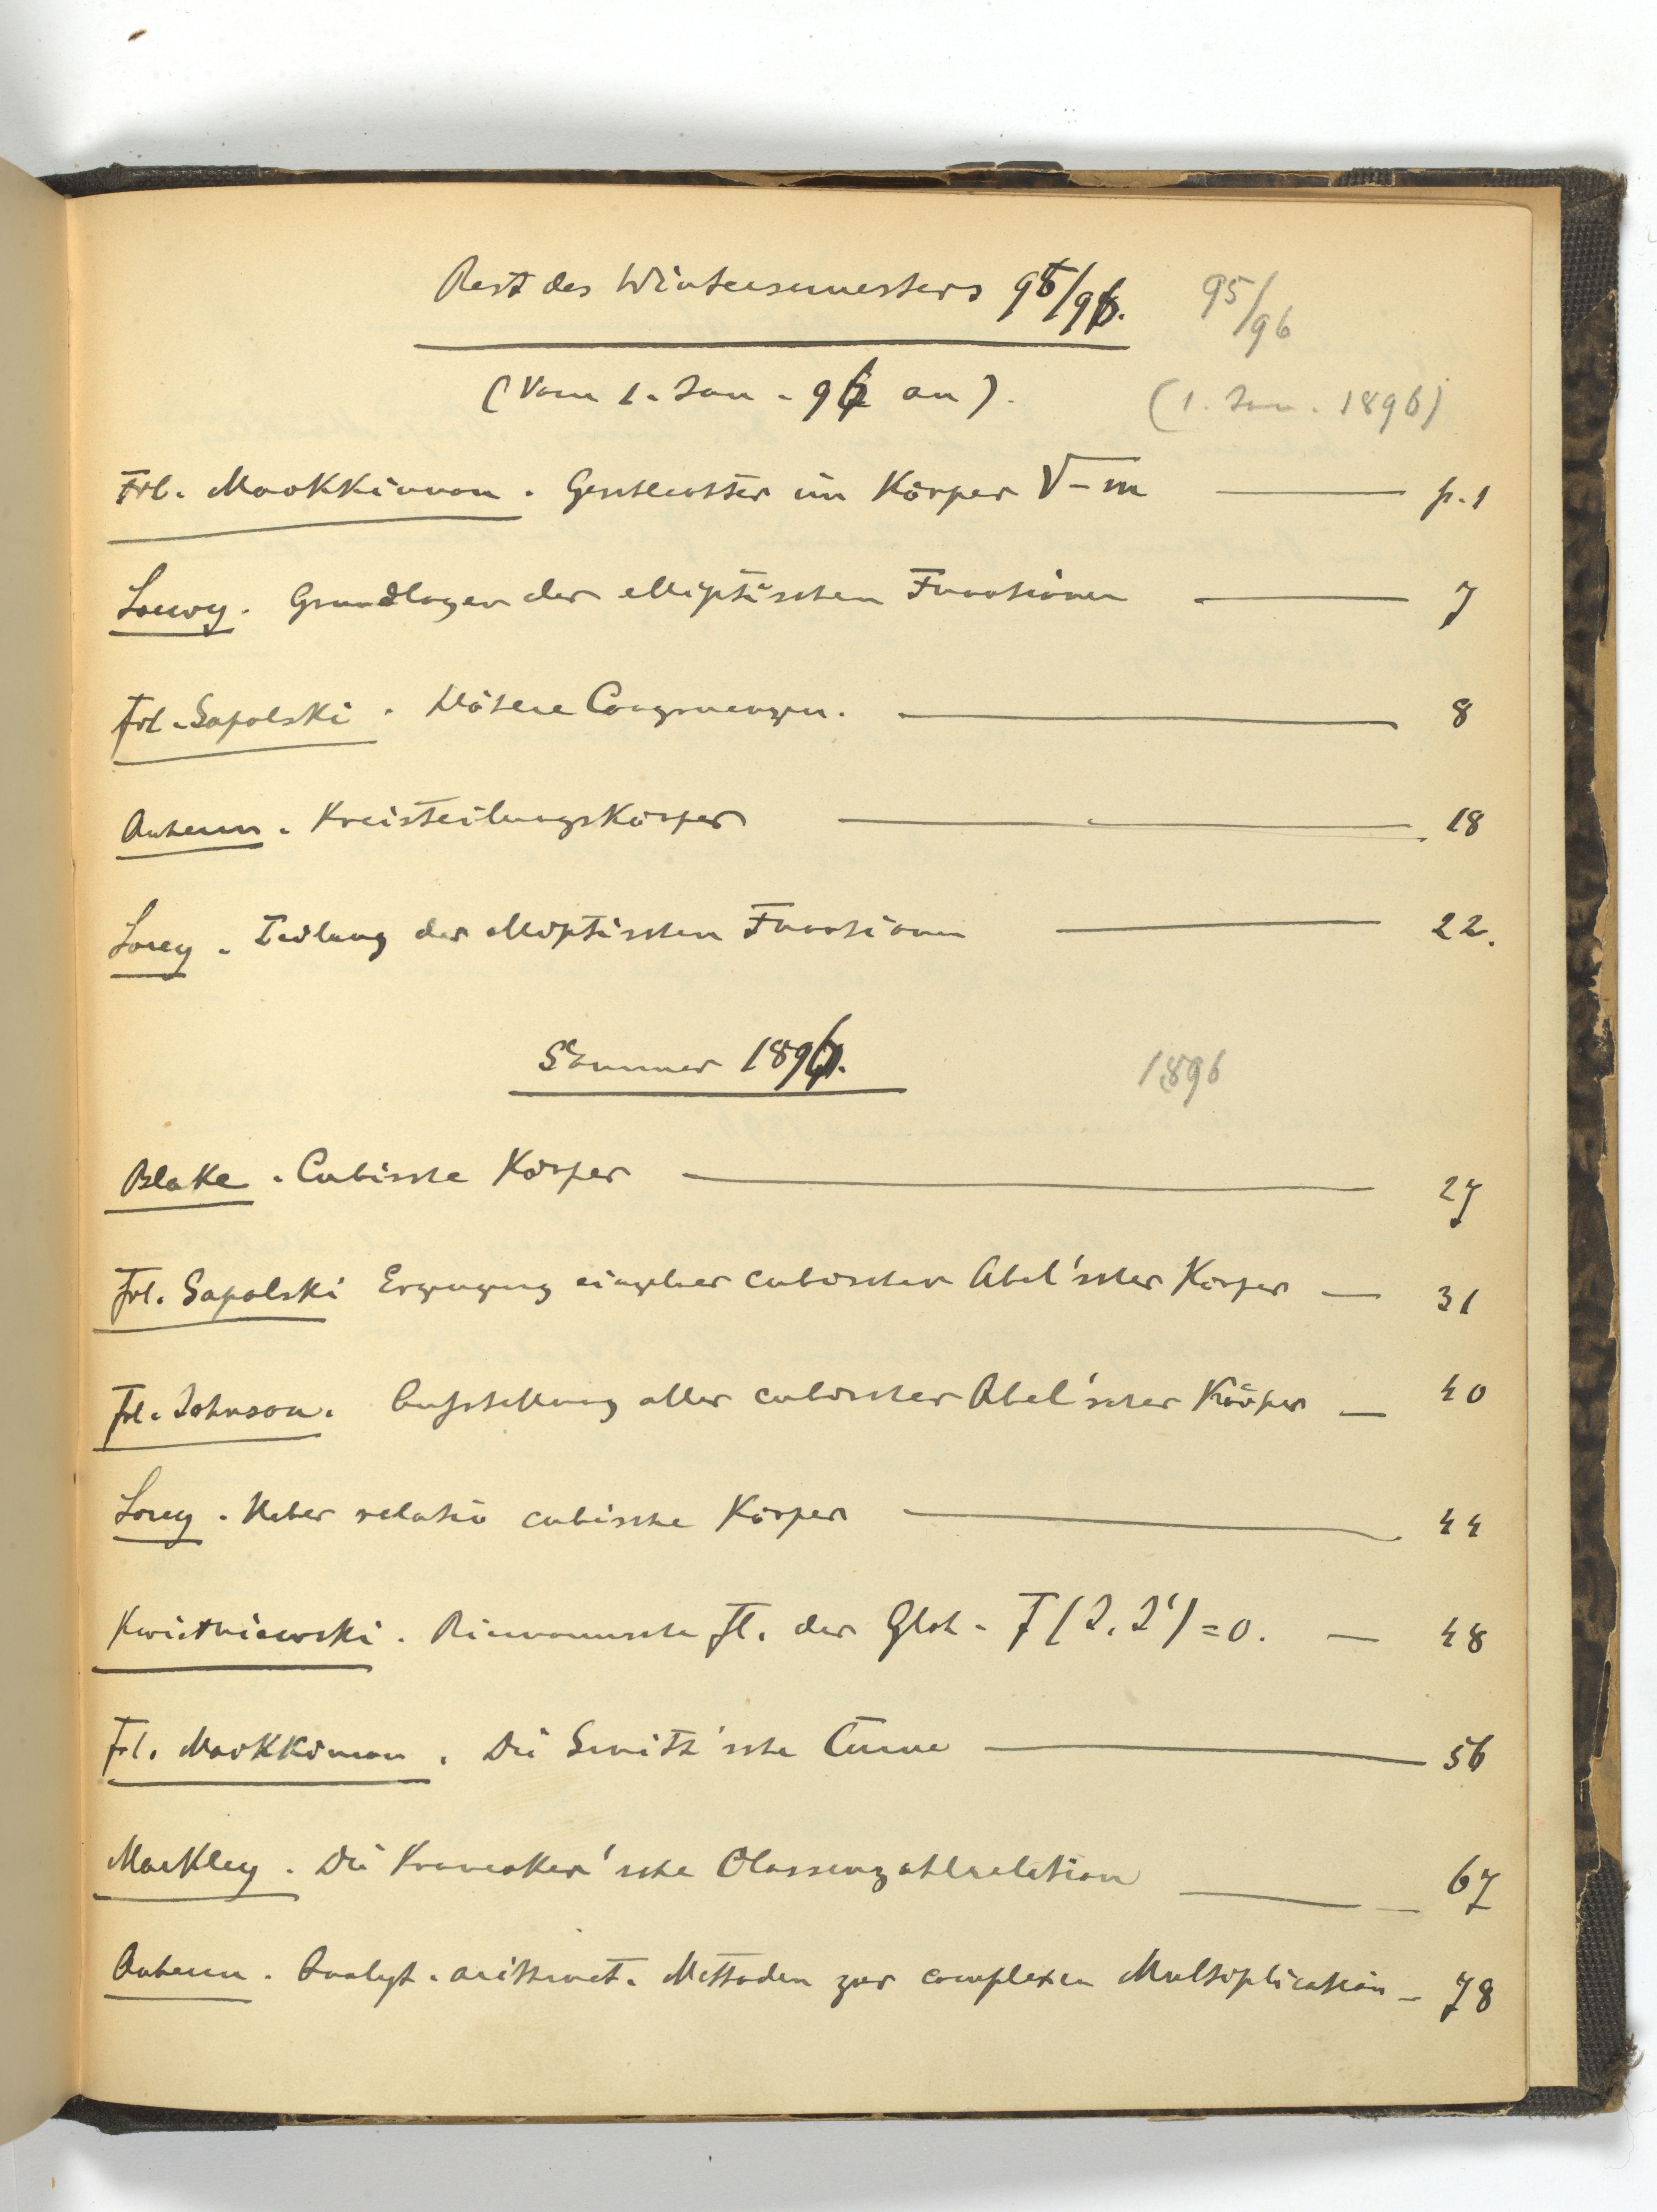 Rest des Wintersemesters 95/96. 95/96
(Vom 1. Jan. 96 an). (1. Jan. 1896)
Frl. MacKKinnon. Geschlechter im Körper √-m — p. 1
Loewy. Grundlagen der elliptischen Functionen — 7
Frl. Sapolski. Höhere Congruenzen. — 8
Kreisteilungskörper — 18
Lorey. Teilung der elliptischen Functionen — 22.
Sommer 1896. 1896
Blake. Cubische Körper — 27
Frl. Sapolski Erzeugung einzelner cubischer Abel'scher Körper — 31
Frl. Johnson. Aufstellung aller cubischer Abel'scher Körper — 40
Lorey. Ueber relativ cubische Körper — 44
Kwietniewski. Riemannsche Fl. der Glch. F(J, J') = 0. — 48
Frl. MacKKinnon. Die Smith'sche Curve — 56
Markley. Die Kronecker'sche Classenzahlrelation — 67
Analyt. arithmet. Methoden zur complexen Multiplication — 78